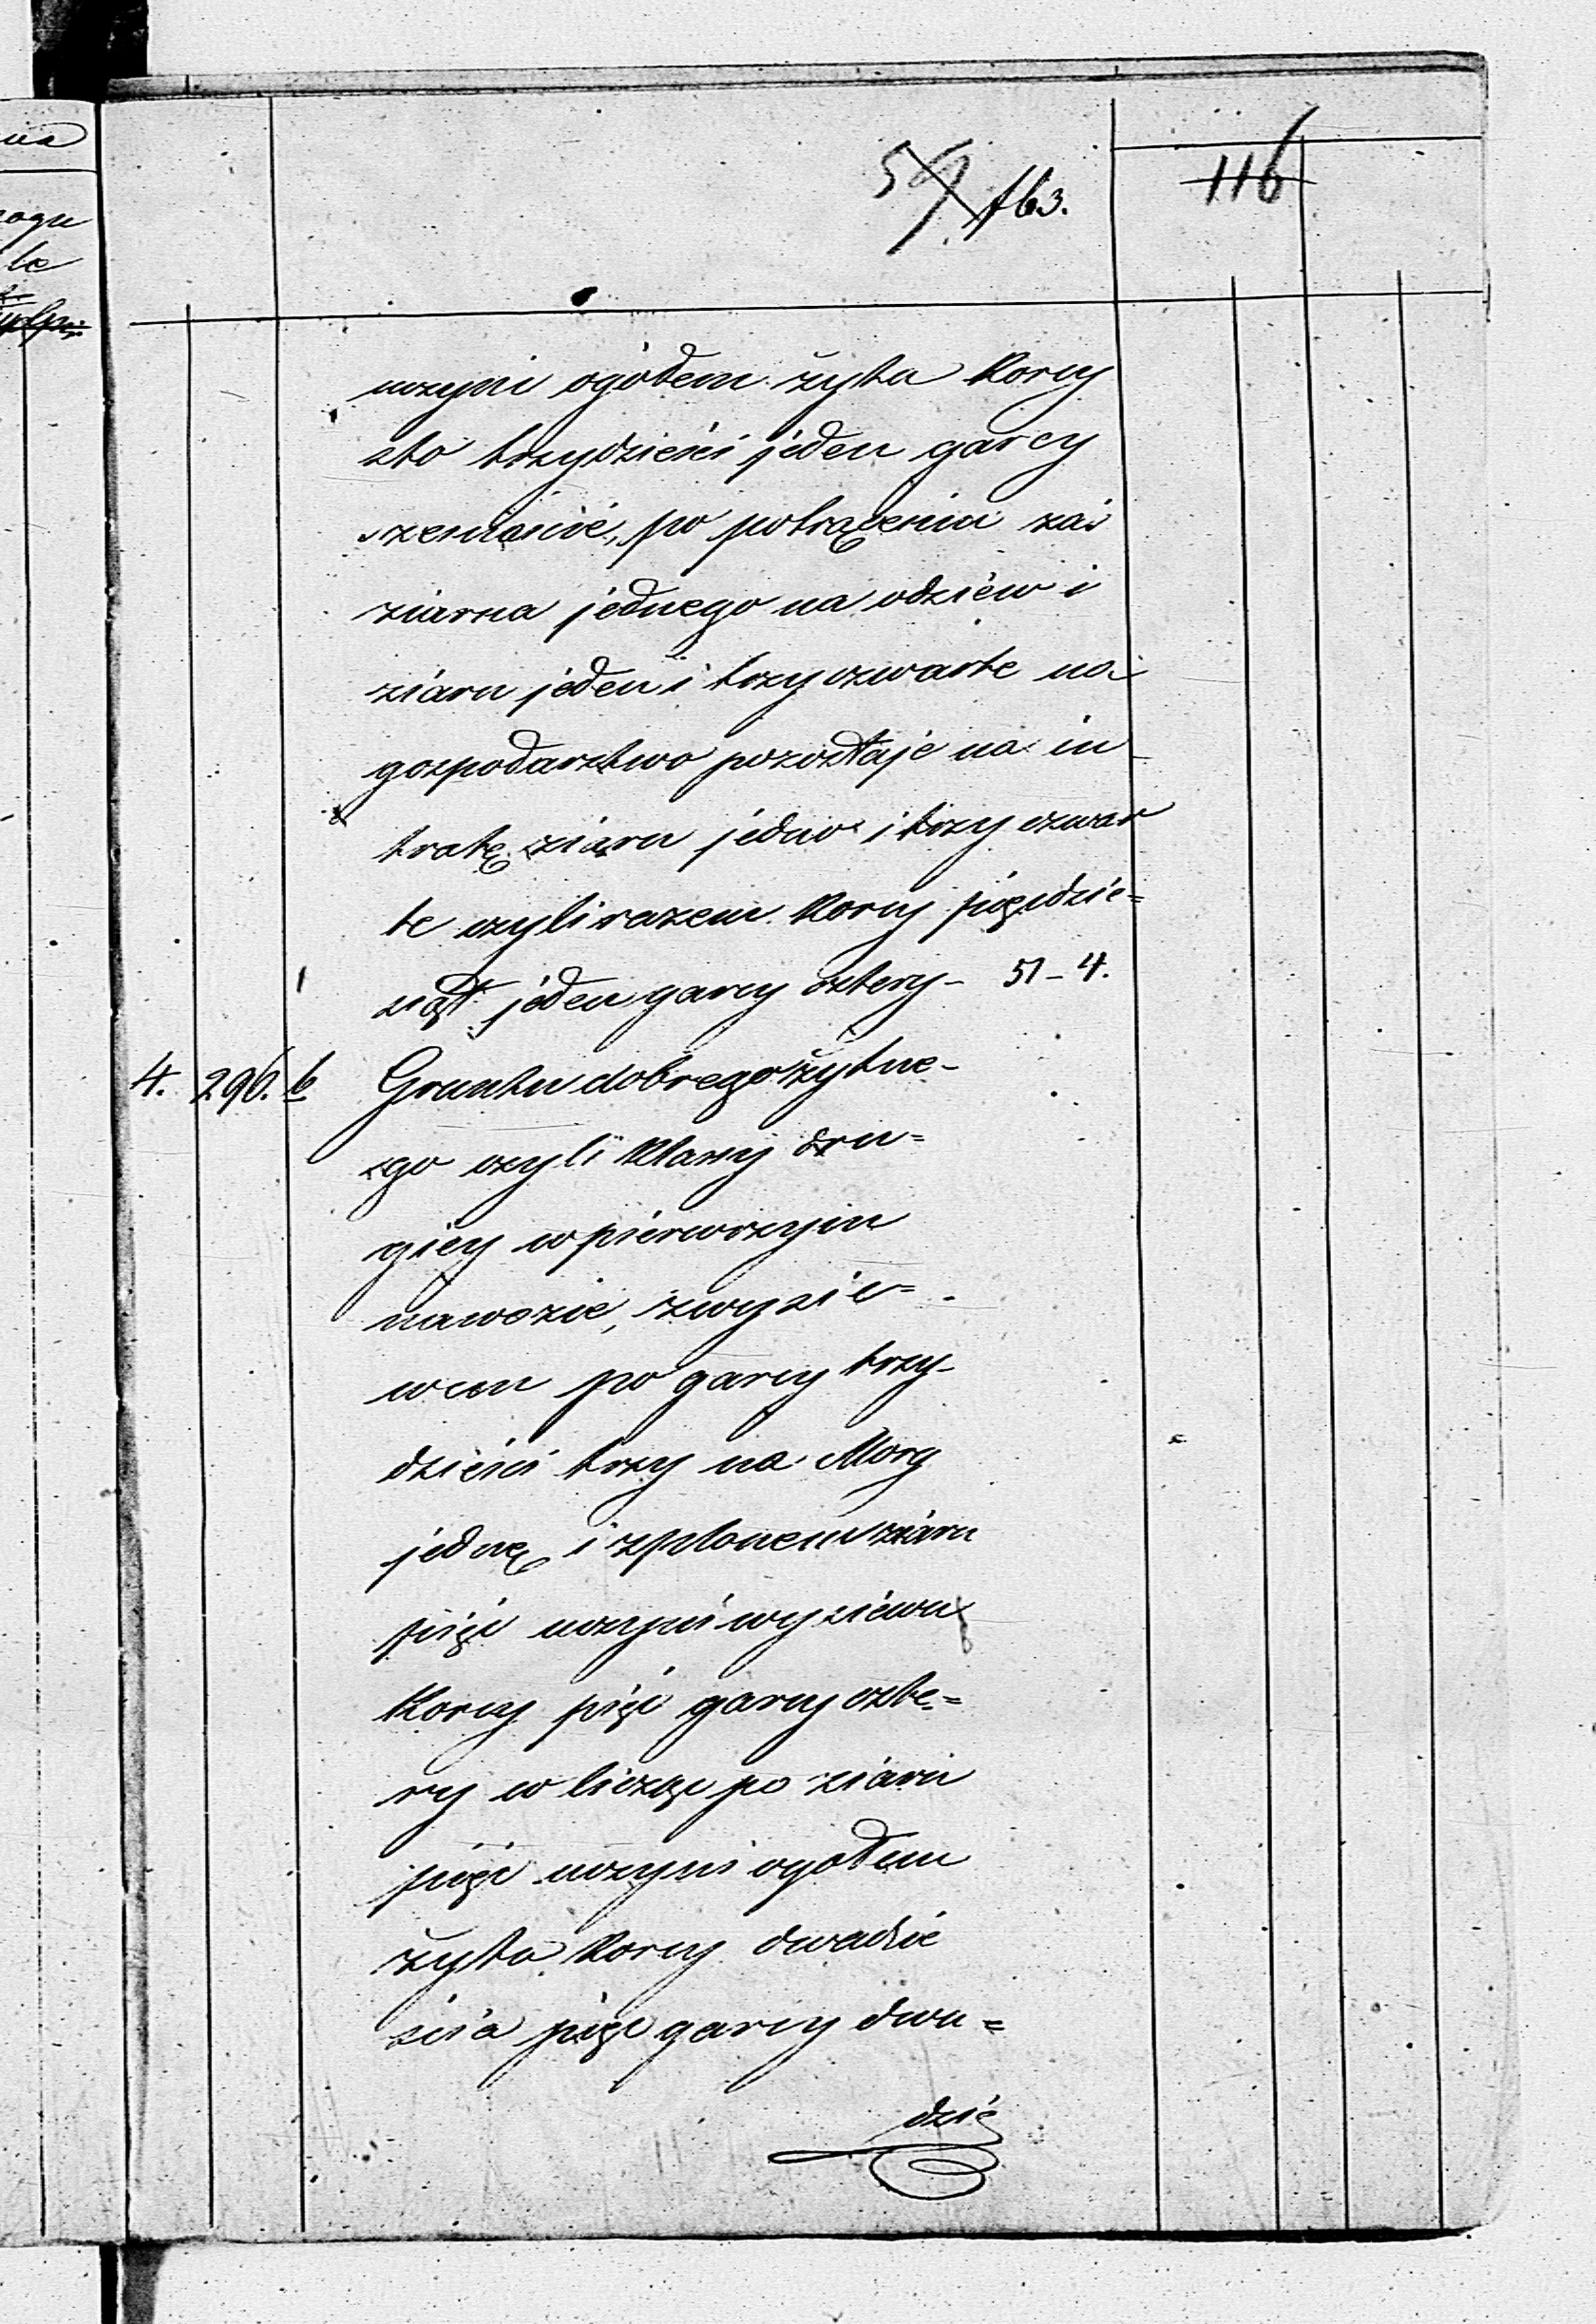 59 163.
116
uczyni ogółem żyta Korcy
sto trzydzieści jeden garcy
szesnaście, po potrąceniu zaś
ziarna jednego na odziew i
ziarn jeden i trzy czwarte na
gospodarstwo pozostaje na in-
tratę ziarn jedno i trzy czwar
te czyli razem Korcy pięćdzie=
siąt jeden garcy cztery - 51 - 4.
4. 296. b Gruntu dobrego żytne-
go czyli Klassy dru=
giey w pierwszym
nawozie, z wysie=
wem po garcy trzy-
dzieści trzy na Morg
jednę i z plonem ziarn
pięć uczyni wysiewu
Korcy pięć garcy czte=
ry w licząc po ziarn
pięć uczyni ogółem
żyta Korcy dwadzie
ścia pięć garcy dwu=
dzie
ogu
le